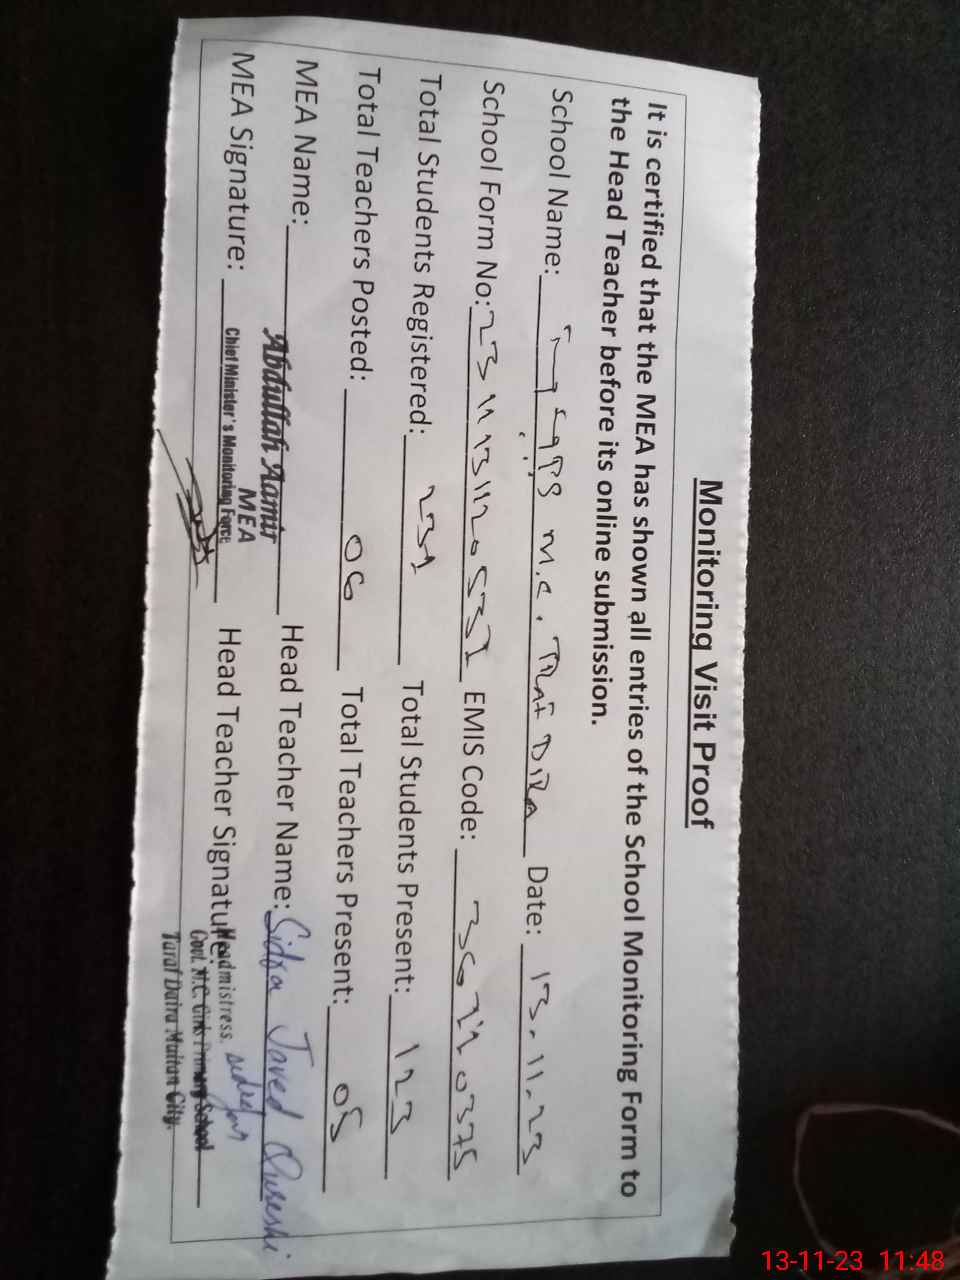 Monitoring Visit Proof
It is certified that the MEA has shown all entries of the School Monitoring Form to
the Head Teacher before its online submission.
School Name: GGPS M.C. Traf DIRA Date: 13.11.23
School Form No: EMIS Code:
Total Students Registered: 239 Total Students Present: 123
Total Teachers Posted: 06 Total Teachers Present: 05
MEA Name: Abdullah Aamir Head Teacher Name: Sidra Javed Qureshi
MEA
MEA Signature: Chief Minister's Monitoring Force Head Teacher Signature:
Headmistress.
Govt. M.C. Girls Primary School
Taraf Daira Multan City.
13-11-23 11:48